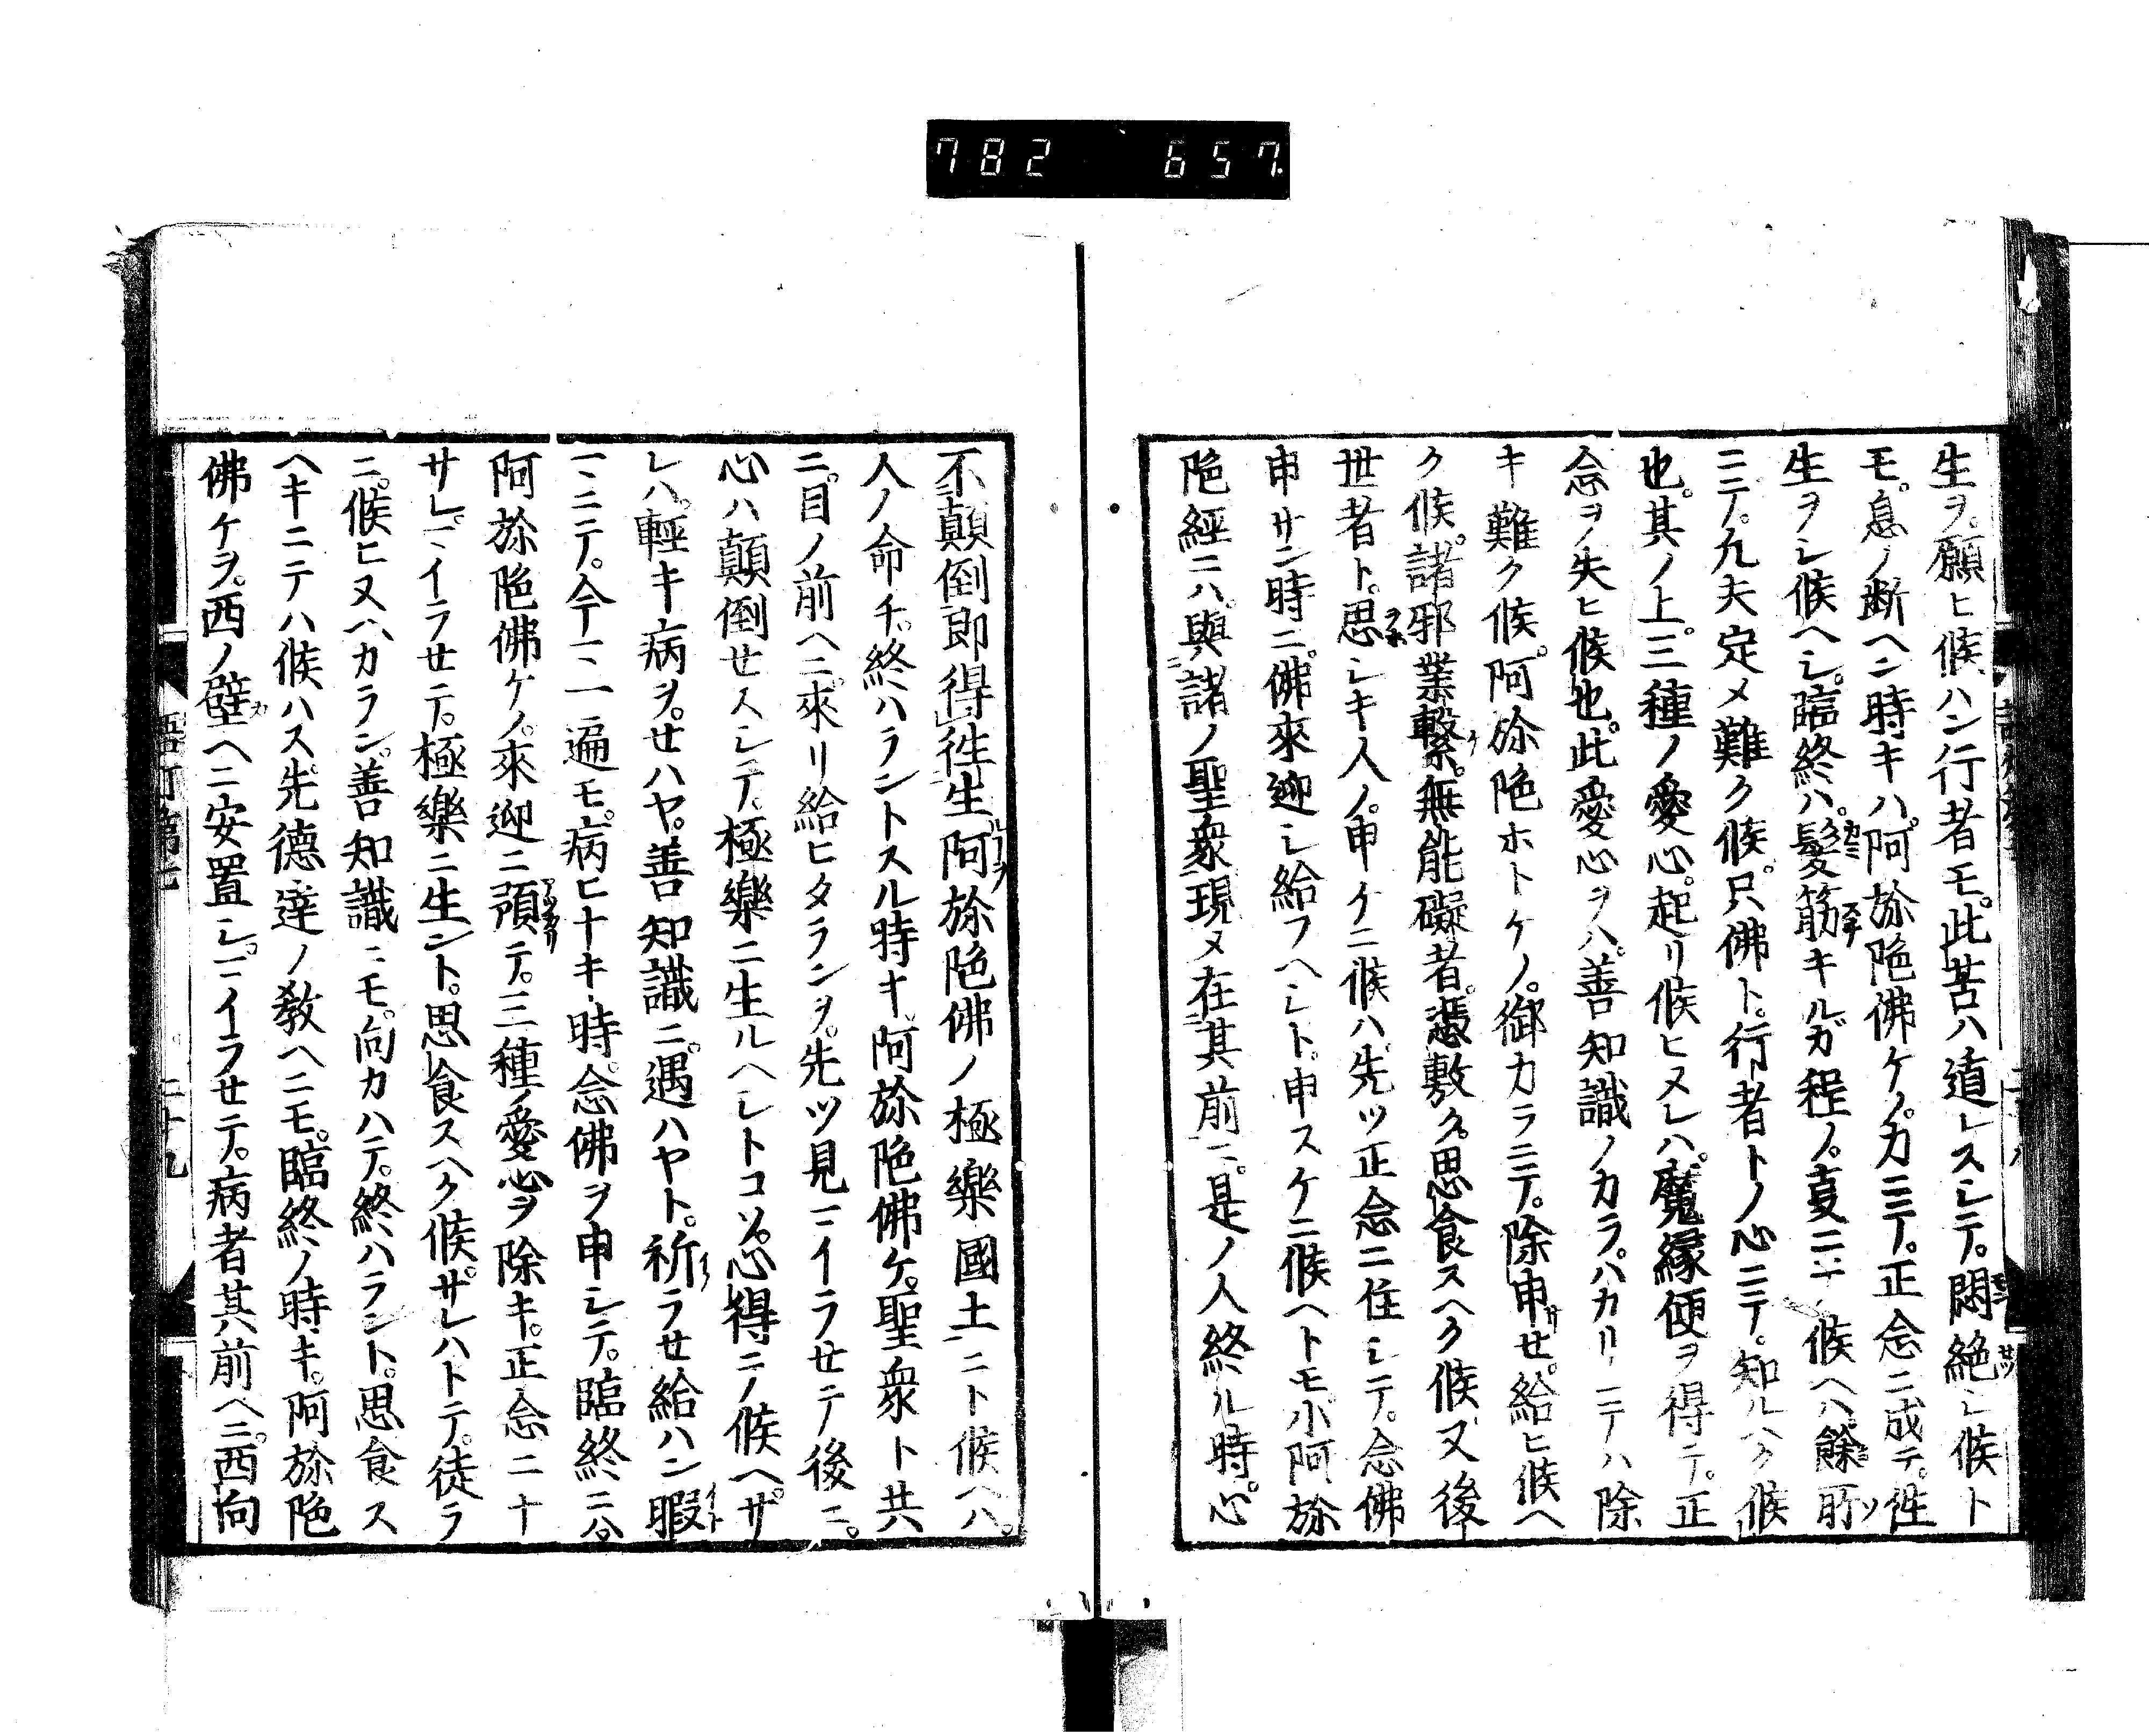 782 657
生ヲ。願ヒ候ハン行者モ。此苦ハ遁レスシテ。悶絶シ候ト
モ。息ノ断ヘン時キハ。阿弥陀佛ケノ。力ニテ。正念ニ成テ。往
生ヲシ候ヘシ。臨終ハ。髪筋キルガ程ノ。亊ニテ候ヘハ。餘所
ニテ。凡夫定メ難ク候。只佛ト。行者トノ心ニテ。知ルヘク候
也。其ノ上。三種ノ愛心。起リ候ヒヌレハ。魔縁便ヲ得テ。正
念ヲ失ヒ候也。此愛心ヲハ。善知識ノカラハカリニテハ除
キ難ク候。阿弥陀ホトケノ。御カラニテ。除申サセ。給ヒ候ヘ
ク候。諸邪業繫。無能礙者。憑敷ク。思食スヘク候又後
世者ト。思シキ人ノ。申ケニ候ハ先ツ正念ニ住シテ。念佛
申サン時ニ。佛來迎シ給フヘシト。申スケニ候ヘトモ。小阿弥
陀經ニハ。與諸ノ聖衆現メ在其前ニ。是ノ人終ル時。心
不顛倒即得往生阿弥陀佛ノ極樂國土ニト候ヘハ。
人ノ命チ。終ハラントスル時キ。阿弥陀佛ケ。聖衆ト共
ニ。目ノ前ヘニ。來リ給ヒタランヲ。先ツ見マイラセテ後ニ。
心ハ顛倒セスシテ。極樂ニ生ルヘシトコソ。心得ニノ候ヘ。サ
レハ。輕キ病ヲ。セハヤ。善知識ニ。遇ハヤト。祈ラセ給ハン暇
マニテ。今マ一遍モ。病ヒナキ時。念佛ヲ申シテ。臨終ニハ。
阿弥陀佛ケノ。來迎ニ預テ。三種ノ愛心ヲ除キ。正念ニナ
サレマイラセテ。極樂ニ生ント。思食スヘク候。サレハトテ。徒ラ
ニ。候ヒヌヘカラン。善知識ニモ。向カハテ。終ハラント。思食ス
ヘキニテハ候ハス。先德達ノ教ヘニモ。臨終ノ時キ。阿弥陀
佛ケヲ。西ノ壁ヘニ安置シ。マイラセテ。病者其前ヘニ。西向
語灯第七
二十九